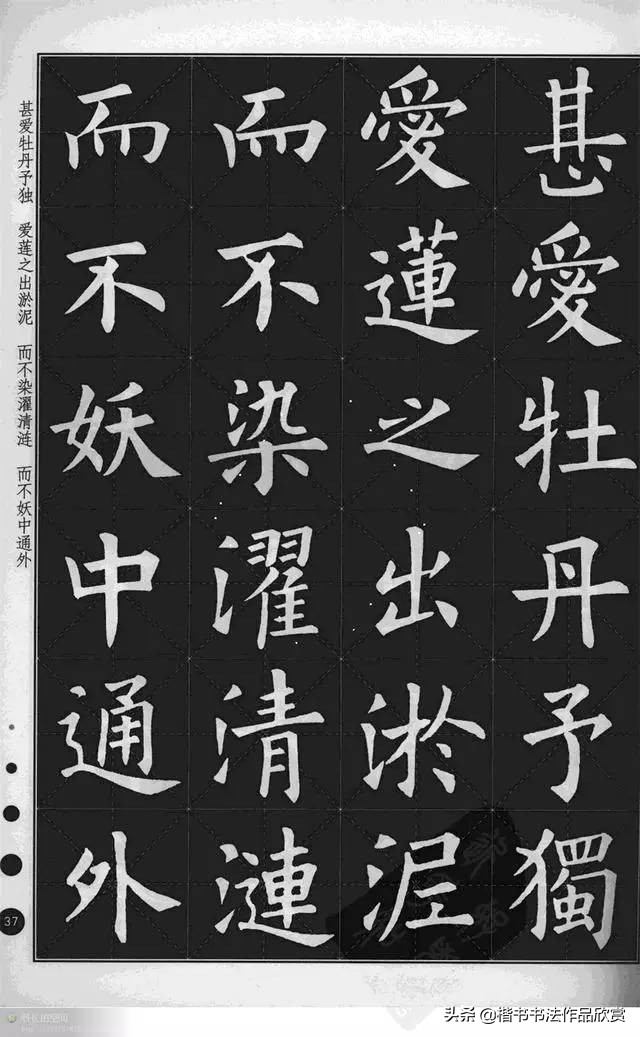 甚愛牡丹予獨
愛蓮之出淤泥
而不染濯清漣
而不妖中通外
甚爱牡丹予独 爱莲之出淤泥 而不染濯清涟 而不妖中通外
37
头条 @楷书书法作品欣赏